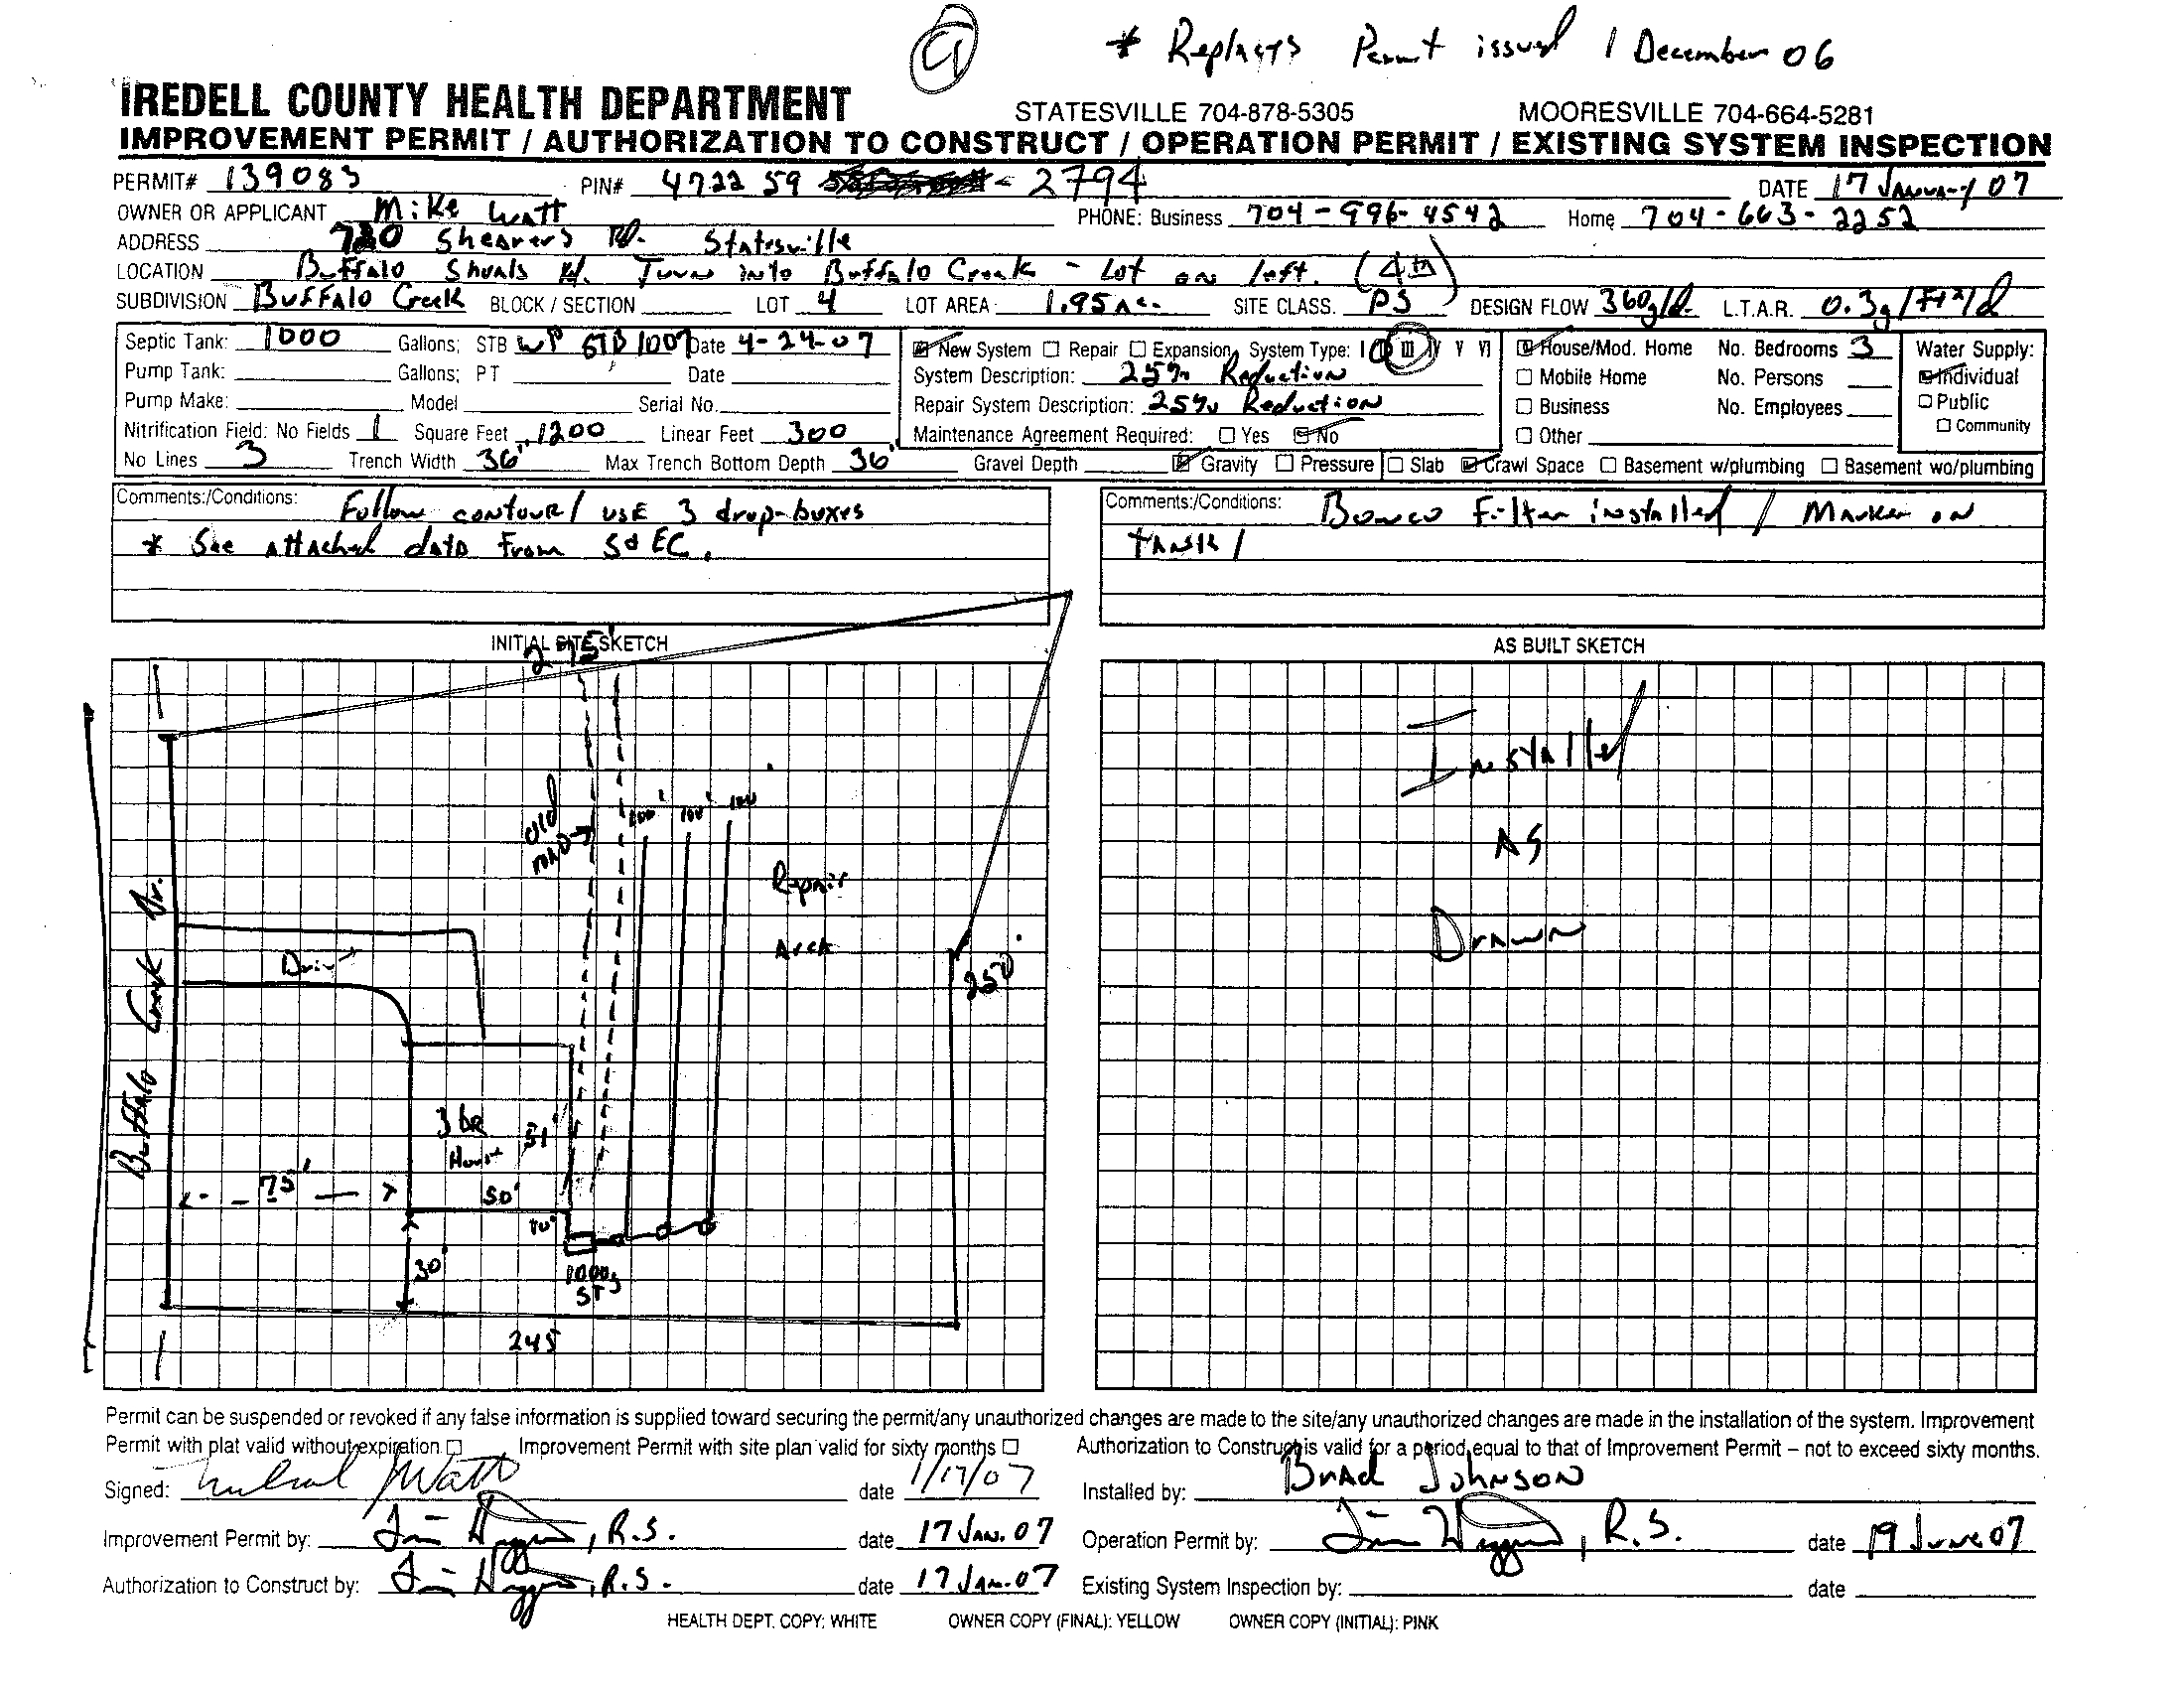 * Replaces Permit issued 1 December 06
IREDELL COUNTY HEALTH DEPARTMENT STATESVILLE 704-878-5305 MOORESVILLE 704-664-5281
IMPROVEMENT PERMIT / AUTHORIZATION TO CONSTRUCT / OPERATION PERMIT / EXISTING SYSTEM INSPECTION
PERMIT# 139083 PIN# 4722 59 - 2794 DATE 17 January 07
OWNER OR APPLICANT Mike Watt PHONE: Business 704-996-4542 Home 704-663-2252
ADDRESS 720 Shearers Rd. Statesville
LOCATION Buffalo Shoals Rd. Turn into Buffalo Creek - Lot on left. (4th)
SUBDIVISION Buffalo Creek BLOCK / SECTION LOT 4 LOT AREA 1.95 Ac. SITE CLASS. PS DESIGN FLOW 360g/d. L.T.A.R. 0.3g/ft²/d
Septic Tank: 1000 Gallons; STB WP STB 1007 Date 4-24-07 New System Repair Expansion System Type: I II III IV V VI House/Mod. Home No. Bedrooms 3 Water Supply:
Pump Tank: Gallons; PT Date System Description: 25% Reduction Mobile Home No. Persons Individual
Pump Make: Model Serial No. Repair System Description: 25% Reduction Business No. Employees Public
Nitrification Field: No Fields 1 Square Feet 1200 Linear Feet 300 Maintenance Agreement Required: Yes No Other Community
No Lines 3 Trench Width 36" Max Trench Bottom Depth 36" Gravel Depth Gravity Pressure Slab Crawl Space Basement w/plumbing Basement wo/plumbing
Comments:/Conditions: Follow contour / use 3 drop-boxes
* See attached data from S&EC.
Comments:/Conditions: Filter installed / Marker on
tank /
INITIAL SITE SKETCH
AS BUILT SKETCH
Old road
100' 100' 100'
Repair
Area
250'
Drive
Buffalo Creek Dr.
3 br House 51'
75'
50'
10'
30'
1000g ST
245
Installed
As
Drawn
Permit can be suspended or revoked if any false information is supplied toward securing the permit/any unauthorized changes are made to the site/any unauthorized changes are made in the installation of the system. Improvement
Permit with plat valid without expiration Improvement Permit with site plan valid for sixty months Authorization to Construct is valid for a period equal to that of Improvement Permit – not to exceed sixty months.
Signed: Michael Watt date 1/17/07 Installed by: Brad Johnson
Improvement Permit by: , R.S. date 17 Jan. 07 Operation Permit by: , R.S. date 19 June 07
Authorization to Construct by: , R.S. date 17 Jan. 07 Existing System Inspection by: date
HEALTH DEPT. COPY: WHITE OWNER COPY (FINAL): YELLOW OWNER COPY (INITIAL): PINK